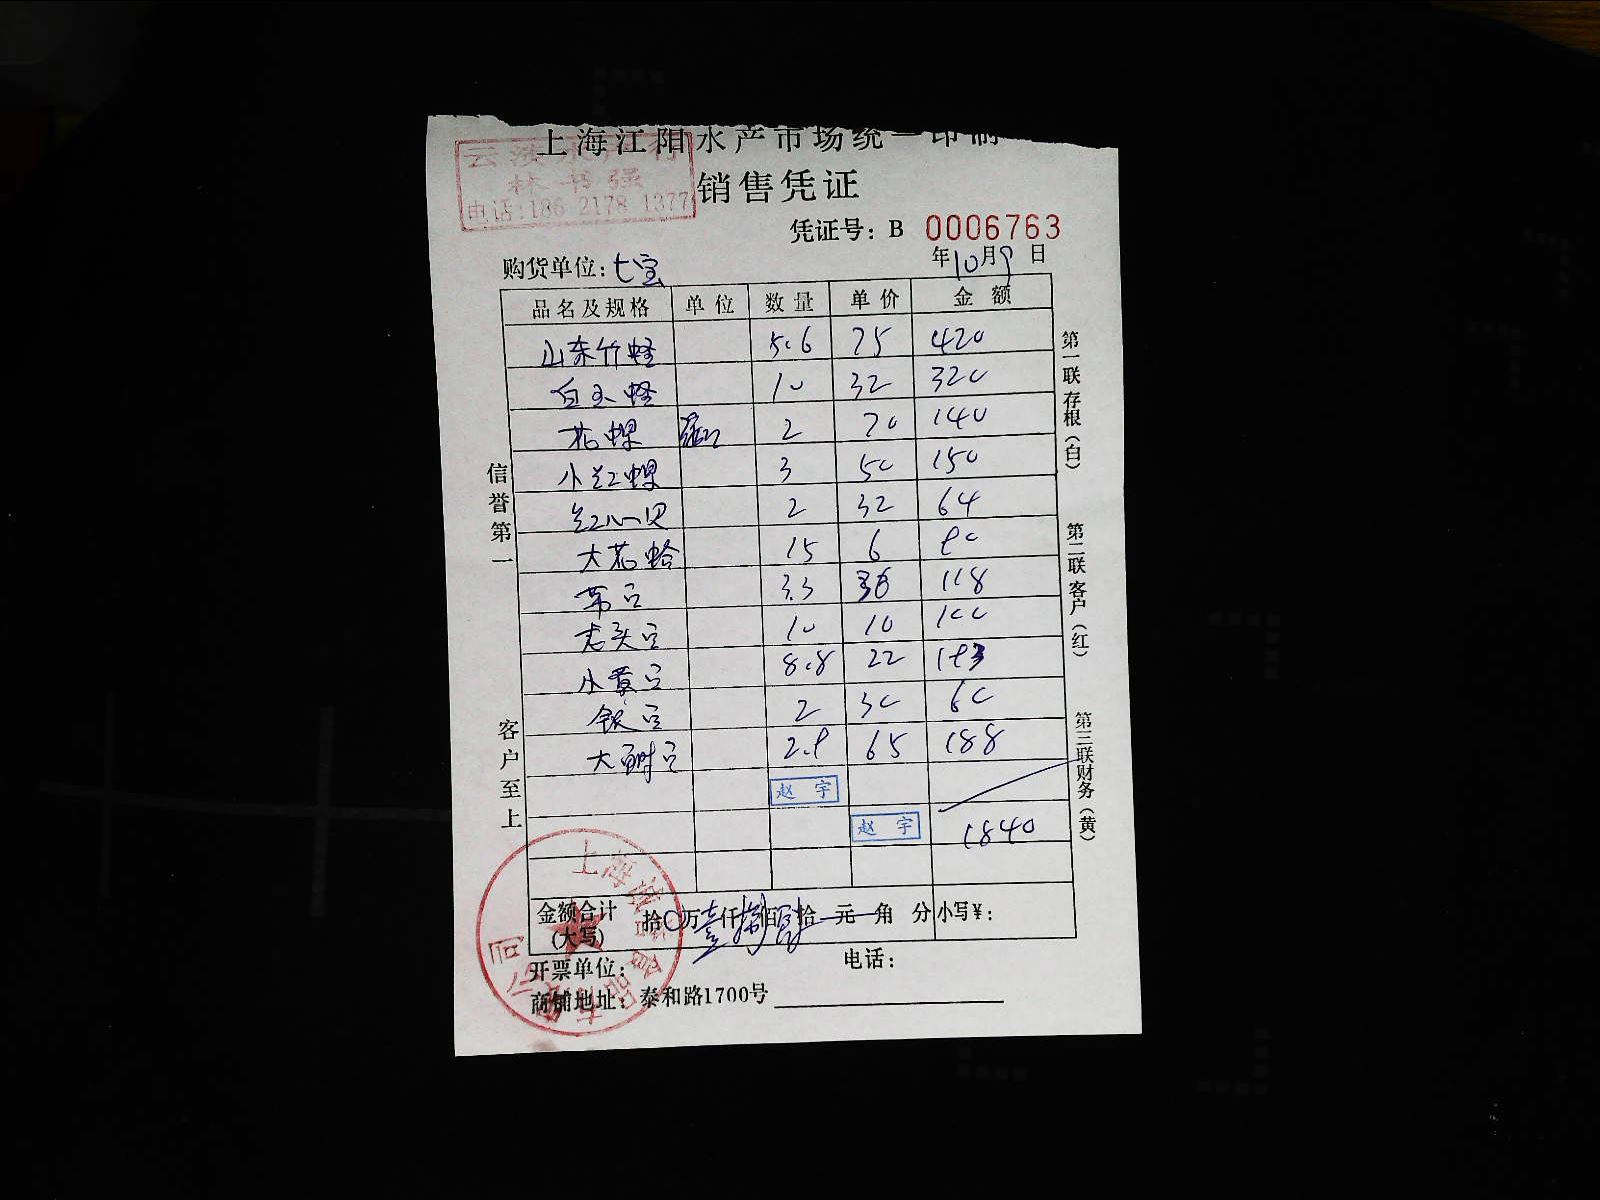 上海江阳水产市场统一印制
电话:186 2178 1377
销售凭证
凭证号: B 0006763
购货单位: 七宝
年10月9日
品名及规格 单位 数量 单价 金额
山东竹蛏 5.6 75 420
白玉蛏 10 32 320
花螺 2 70 140
小红螺 3 50 150
红心贝 2 32 64
大花蛤 15 6 90
3.3 36 118
老头豆 10 10 100
小黄豆 8.8 22 193
银豆 2 30 60
2.9 65 188
赵宇
赵宇
1840
金额合计
(大写)
拾〇万壹仟捌佰肆拾元角分 小写¥:
开票单位: 电话:
商铺地址: 泰和路1700号
信誉第一
客户至上
第一联存根(白)
第二联客户(红)
第三联财务(黄)